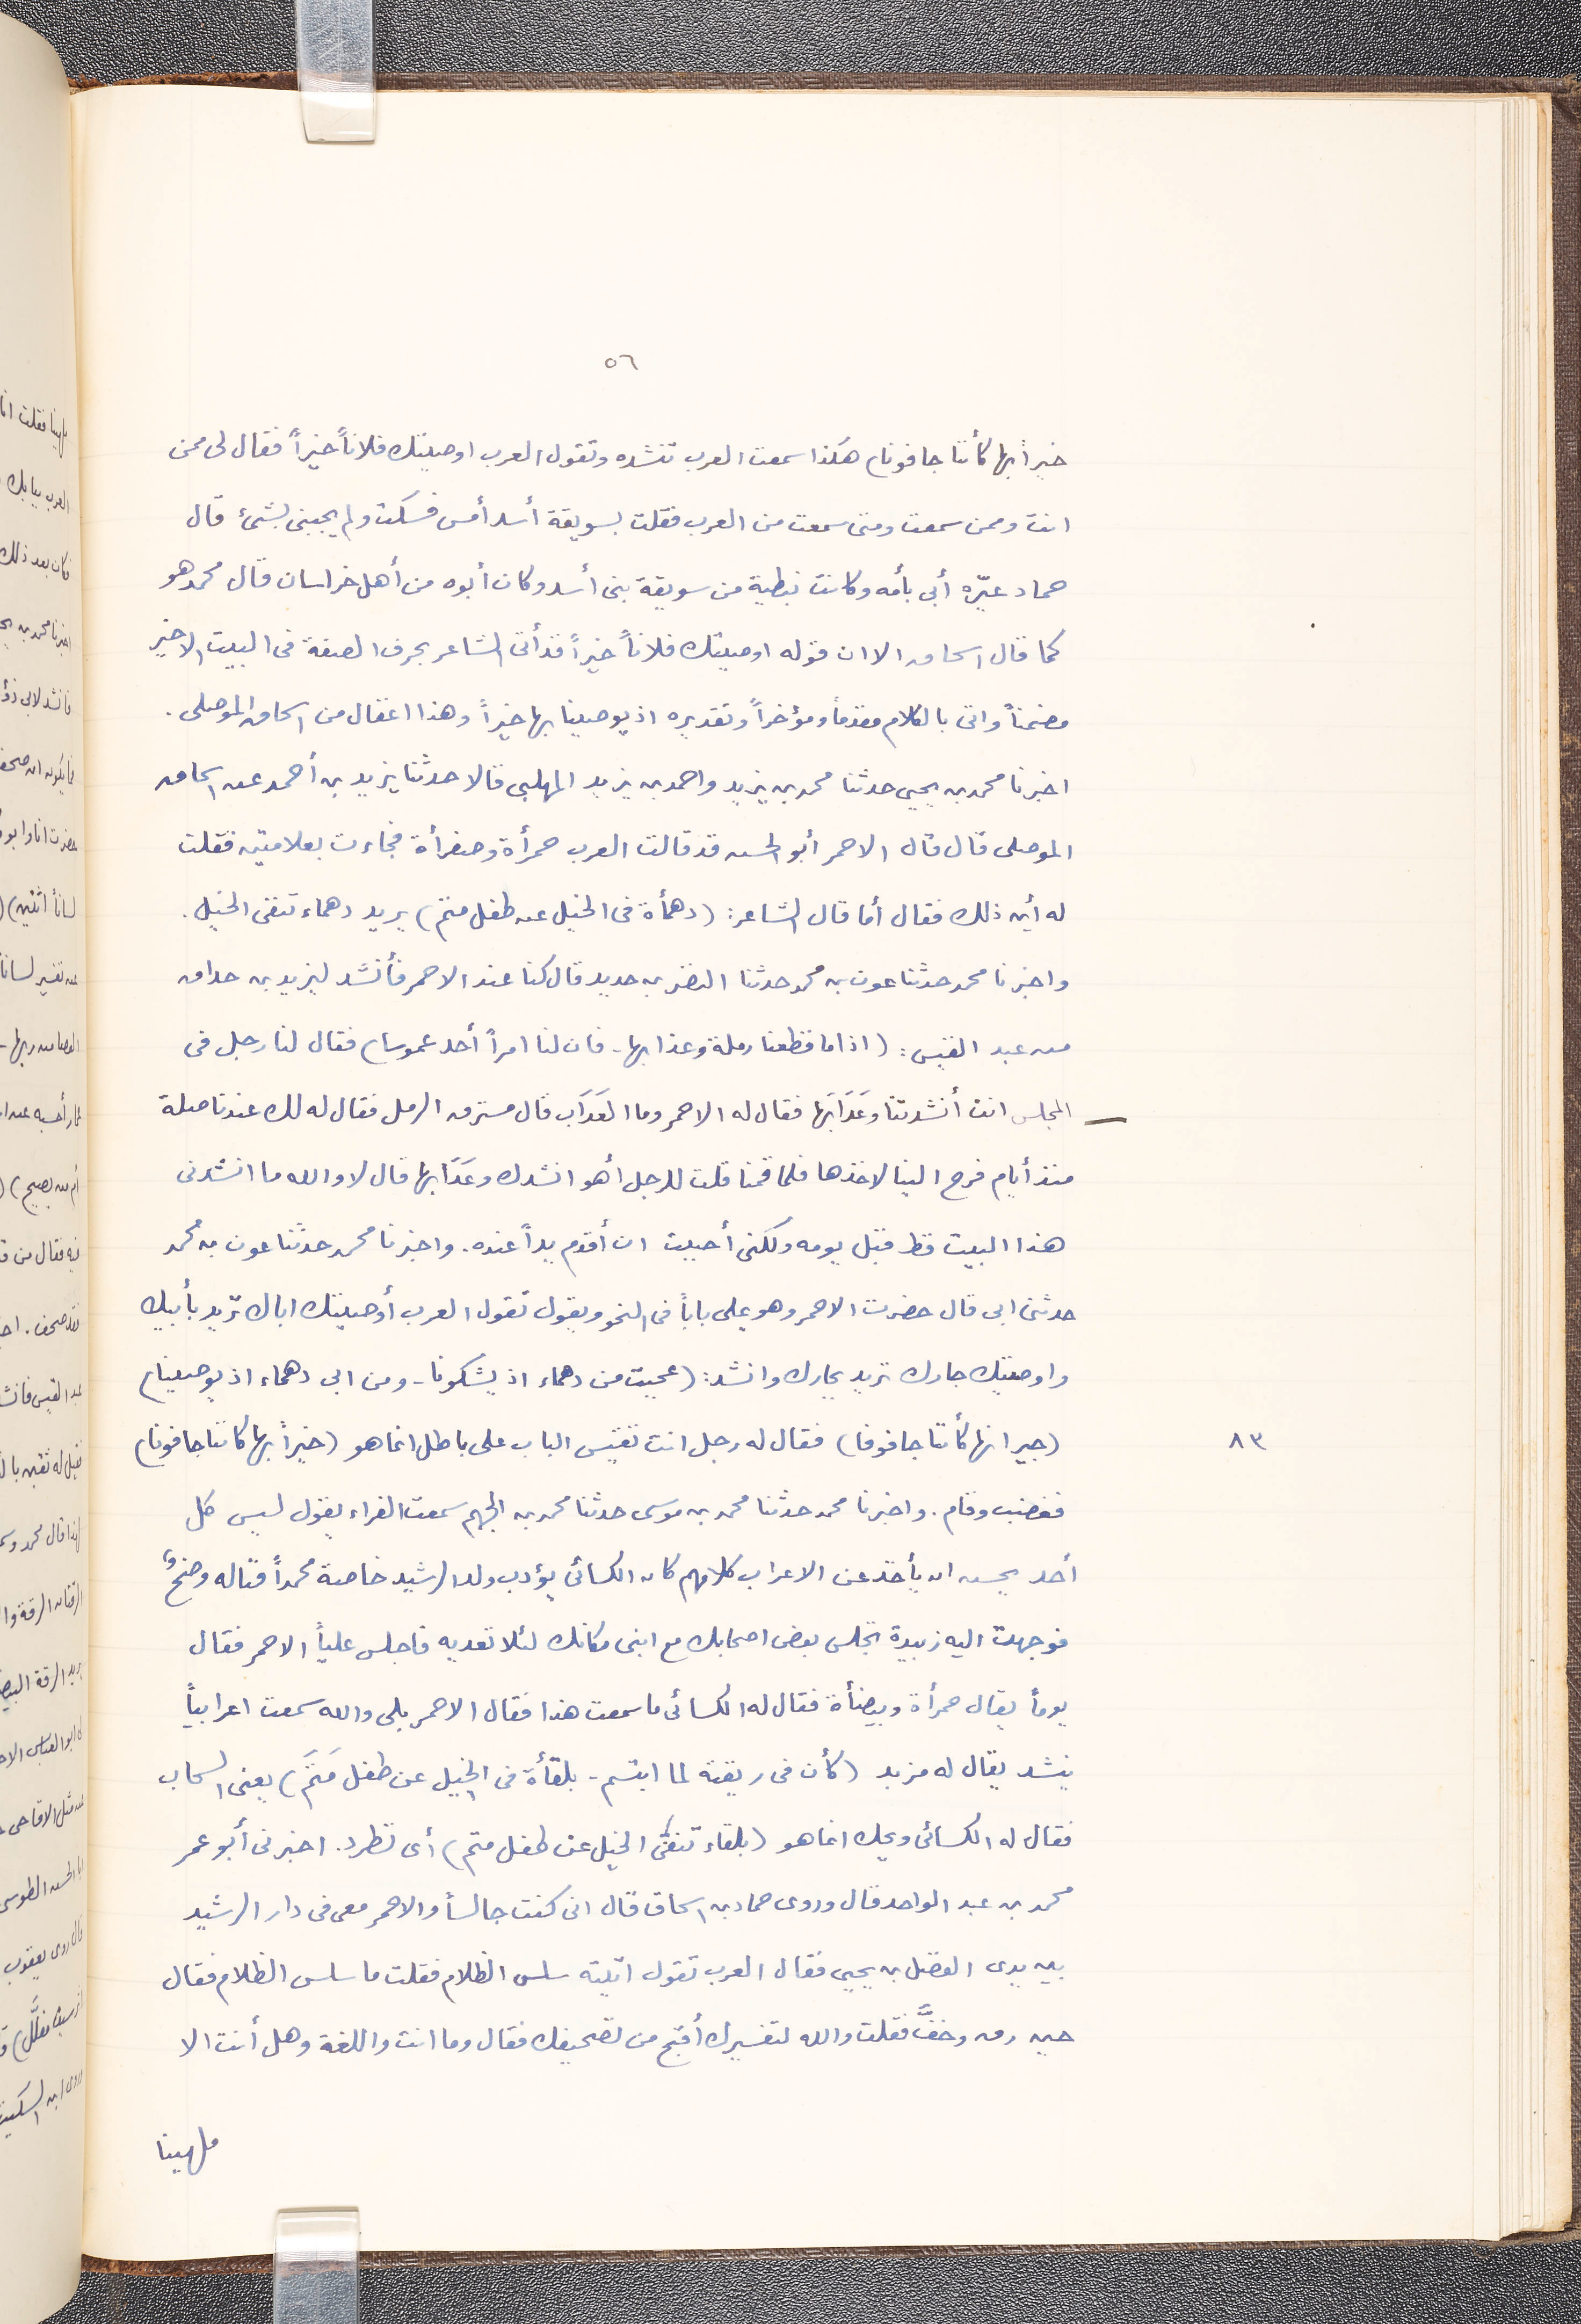 ٥٦
خيراً بها كأننا جافونا) هكذا سمعت العرب تنشده وتقول العرب اوصيتك فلاناً خيراً فقال لى ممن
انت وممن سمعت ومتى سمعت من العرب فقلت بسويقة أسد أمس فسكت ولم يجبنى بشئ قال
حماد عيّره أبى بأمه وكانت نبطية من سويقة بنى أسد وكان أبوه من أهل خراسان قال محمد هو
كما قال اسحاق الا ان قوله اوصيتك فلاناً خيراً قد أتى الشاعر بحرف الصفة فى البيت الاخير
مضمناً واتى بالكلام مقدماً ومؤخراً وتقديره اذ يوصينا بها خيراً وهذا اغفال من اسحاق الموصلى.
اخبرنا محمد بن يحيى حدثنا محمد بن يزيد واحمد بن يزيد المهلبى قالا حدثنا يزيد بن أحمد عن اسحاق
الموصلى قال قال الاحمر أبو الحسن قد قالت العرب حمرأة وصفرأة فجاءت بعلامتين فقلت
له أين ذلك فقال أما قال الشاعر: (دهمأة فى الخيل عن طفل متم) يريد دهماء تنفى الخيل.
واخبرنا محمد حدثنا عون بن محمد حدثنا النضر بن حديد قال كنا عند الاحمر فأنشد ليزيد بن حذاق
من عبد القيس: (اذا ما قطعنا رملة وعذابها - فان لنا امراً أحذ عموسا) فقال لنا رجل فى
المجلس انت أنشدتنا وعَدَابَها فقال له الاحمر وما العَدَاب قال مسترق الرمل فقال له لك عندنا صلة
منذ أيام فرح الينا لاخذها فلما قمنا قلت للرجل أهو انشدك وعَدَابها قال لا والله ما انشدنى
هذا البيت قط قبل يومه ولكنى أحببت ان أقدم يداً عنده. واخبرنا محمد حدثنا عون بن محمد
حدثنى ابى قال حضرت الاحمر وهو يملى باباً فى النحو ويقول تقول العرب أوصيتك اباك تريد بأبيك
واوصيتك جارك تريد بجارك وانشد: (عجبت من دهماء اذ يشكونا - ومن ابى دهماء اذ يوصينا)
٨٣ (جيرانها كأننا جافونا) فقال له رجل انت تقيس الباب على باطل انما هو (خيراً بها كاننا جافونا)
فغضب وقام. واخبرنا محمد حدثنا محمد بن موسى حدثنا محمد بن الجهم سمعت الفراء يقول ليس كل
أحد يحسن ان يأخذ عن الاعراب كلامهم كان الكسائى يؤدب ولد الرشيد خاصة محمداً فناله وضحٌ
فوجهت اليه زبيدة تجلس بعض اصحابك مع ابنى مكانك لئلا تعديه فاجلس علياً الاحمر فقال
يوماً يقال حمرأة وبيضأة فقال له الكسائى ما سمعت هذا فقال الاحمر بلى والله سمعت اعرابياً
ينشد يقال له مزيد (كأن فى ريقته لما ابتسم - بلقأة فى الخيل عن طفل مَتَم) يعنى السحاب
فقال له الكسائى ويحك انما هو (بلقاء تنفى الخيل عن طفل متم) أى تطرد. اخبرنى أبو عمر
محمد بن عبد الواحد قال وروى حماد بن اسحاق قال انى كنت جالساً والاحمر معى فى دار الرشيد
بين يدى الفضل بن يحيى فقال العرب تقول اتيته سلس الظلام فقلت ما سلس الظلام فقال
حين رق وخفَّ فقلت والله لتفسيرك أقبح من تصحيفك فقال وما انت واللغة وهل أنت الا
ملهينا